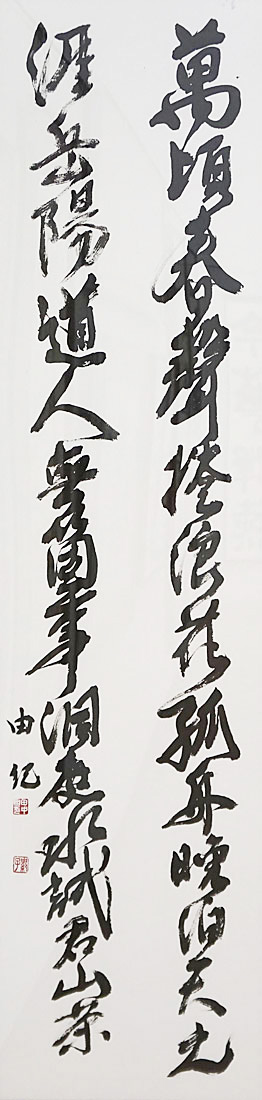 萬頃春聲捲浪花孤舟晚泊天之
涯岳陽道人無箇事洞庭水試君山茶
由紀